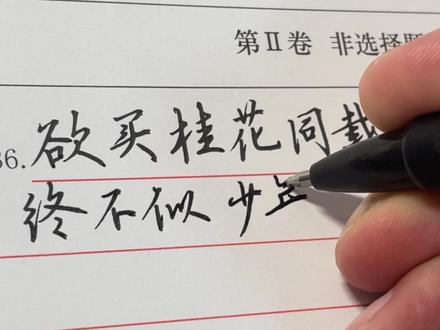 第Ⅱ卷 非选择题
36.欲买桂花同载
终不似 少年